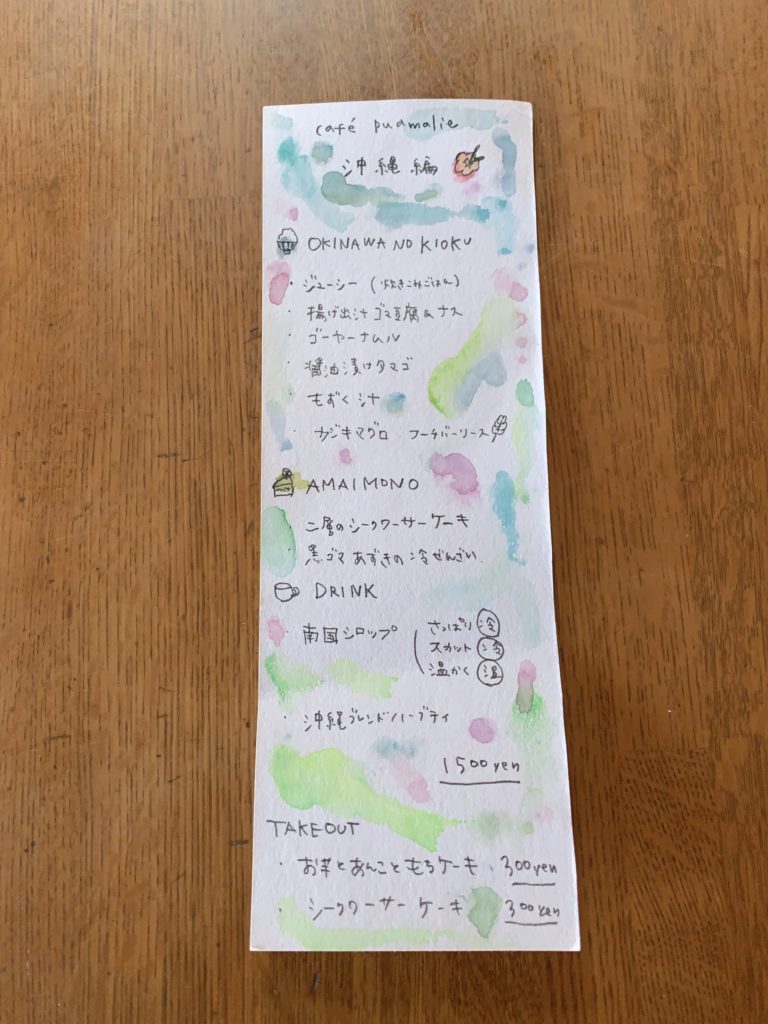 café puamalie
沖縄編
OKINAWA NO KIOKU
・ジューシー (炊きこみごはん)
・揚げ出汁ゴマ豆腐&ナス
・ゴーヤーナムル
・醤油漬けタマゴ
・もずく汁
・カジキマグロ フーチバーソース
AMAIMONO
二層のシークワーサーケーキ
黒ゴマあずきの冷ぜんざい
DRINK
南国シロップ
さっぱり 冷
スカット 冷
温かく 温
・沖縄ブレンドハーブティ
1500yen
TAKEOUT
・お芋とあんこともちケーキ 300yen
・シークワーサーケーキ 300yen